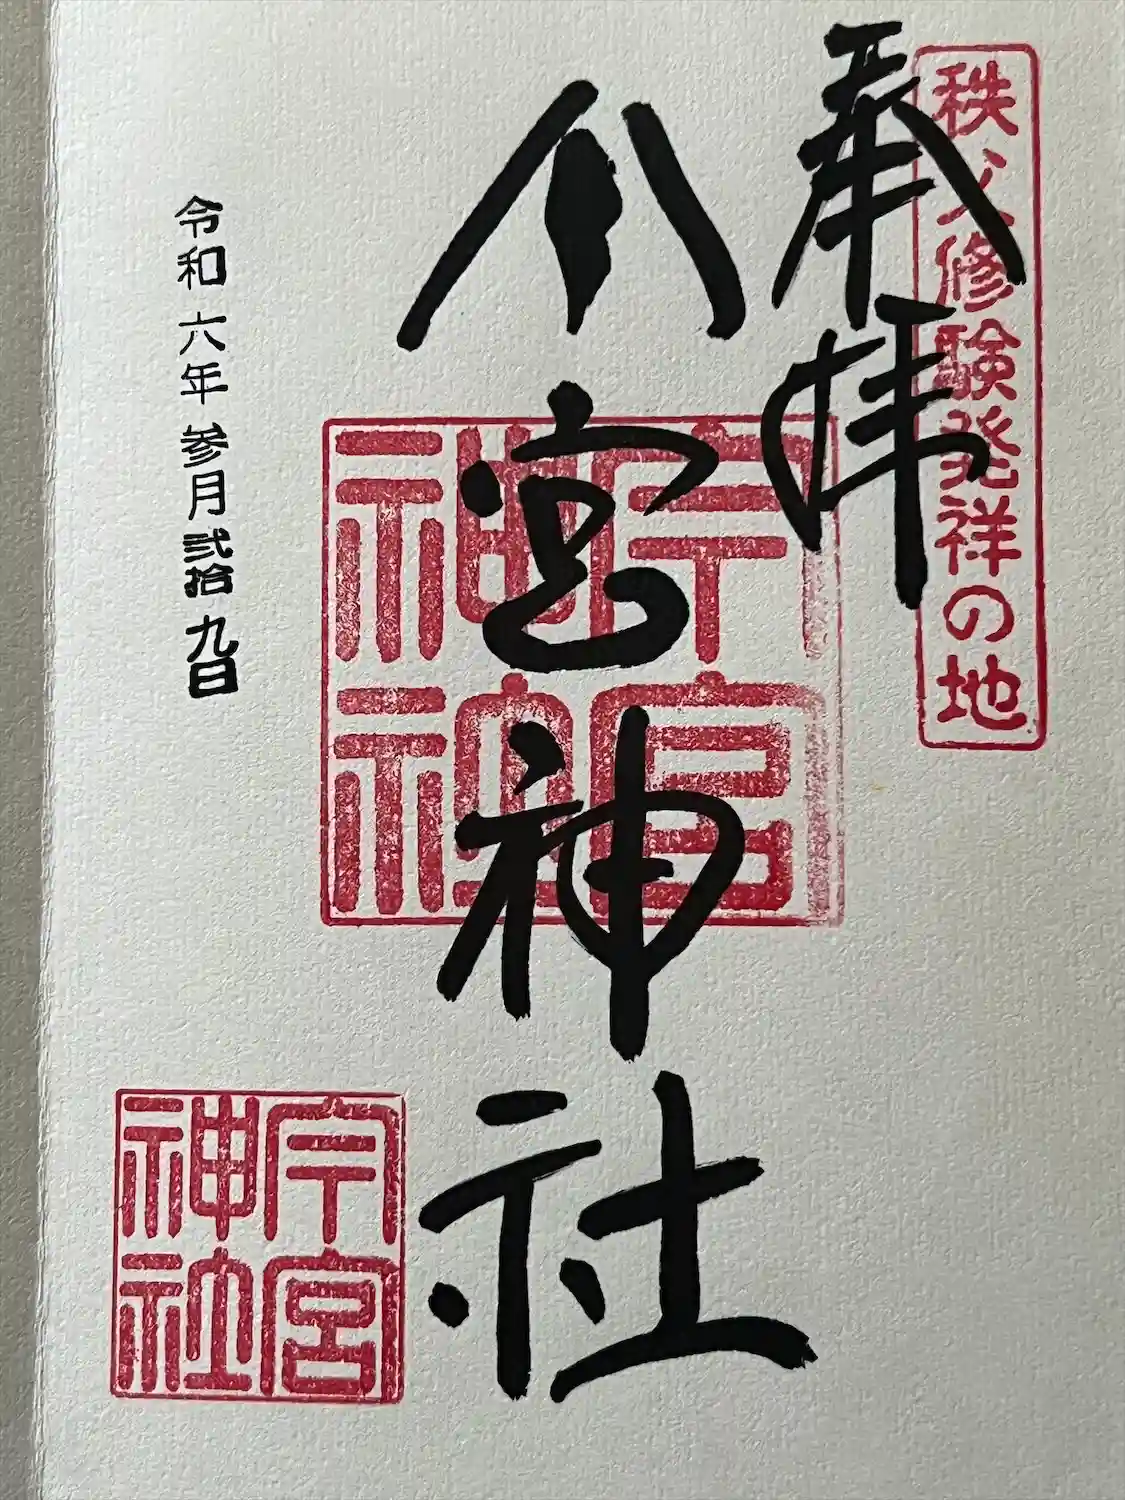 秩父修験発祥の地
奉拝
今宮神社
今宮神社
令和六年参月弐拾九日
今宮神社